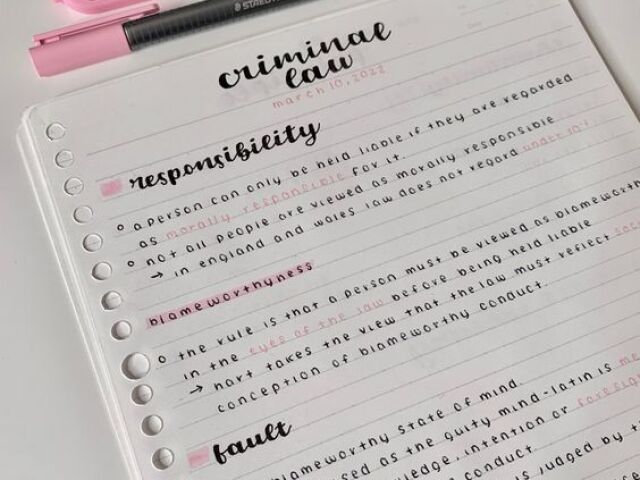 STAEDTLER
criminal
law
march 10, 2022
responsibility
o a person can only be held liable if they are regarded
as morally responsible for it.
o not all people are viewed as morally responsible
→ in england and wales law does not regard under
blameworthyness
o the rule is that a person must be viewed as blameworthy
in the eyes of the law before being held liable
→ hart takes the view that the law must reflect
conception of blameworthy conduct.
fault
blameworthy state of mind.
as the guilty mind-latin is
intention or
conduct
is judged by